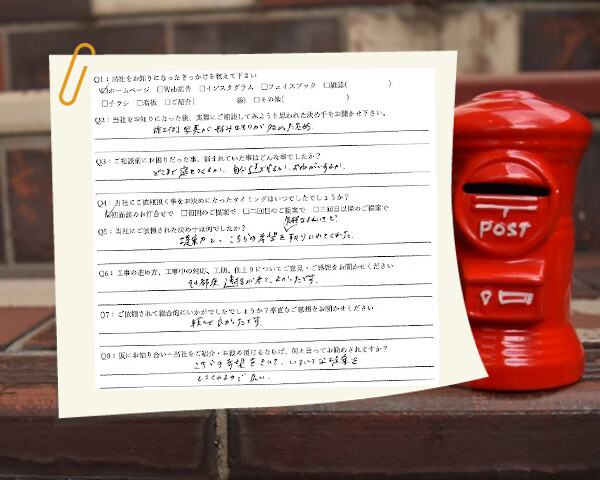 Q1：当社をお知りになったきっかけを教えて下さい
☑ホームページ □Web広告 □インスタグラム □フェイスブック □雑誌( )
□チラシ □看板 □ご紹介( 様) □その他( )
Q2：当社をお知りになった後、実際にご相談してみようと思われた決め手をお聞かせ下さい。
施工例 写真が好みなものが多かったため。
Q3：ご相談前にお困りだった事、悩まれていた事はどんな事でしたか？
どこまで庭をつくるか、
Q4：当社にご依頼頂く事をお決めになったタイミングはいつでしたでしょうか？
☑初回面談のお打合せで □初回のご提案で □二回目のご提案で □三回目以降のご提案で
Q5：当社にご依頼された決め手は何でしたか？
提案力と、こちらの希望を取り入れてくれた。
Q6：工事の進め方、工事中の対応、工期、仕上りについてご意見・ご感想をお聞かせください
その都度 連絡が来て、よかったです。
Q7：ご依頼されて総合的にいかがでしたでしょうか？率直なご感想をお聞かせください
頼んで良かったです。
Q8：仮にお知り合いへ当社をご紹介・お薦め頂けるならば、何と言ってお勧めされますか？
こちらの希望をきいて、いろいろな提案を
してくれるので 良い。
〒
POST